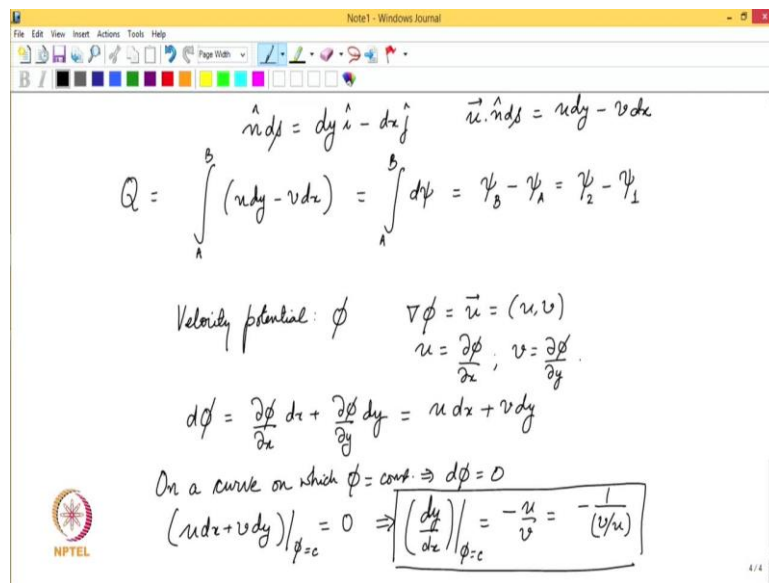 Note1 - Windows Journal
File Edit View Insert Actions Tools Help
Page Width
B I
n̂ds = dy î - dx ĵ    u⃗.n̂ds = udy - vdx
Q = ∫_A^B (udy - vdx) = ∫_A^B dψ = ψ_B - ψ_A = ψ_2 - ψ_1
Velocity potential: ϕ    ∇ϕ = u⃗ = (u, v)
u = ∂ϕ/∂x ; v = ∂ϕ/∂y .
dϕ = ∂ϕ/∂x dx + ∂ϕ/∂y dy = u dx + v dy
On a curve on which ϕ = const. ⇒ dϕ = 0
(udx + vdy)|_ϕ=c = 0 ⇒ (dy/dx)|_ϕ=c = -u/v = -1/(v/u)
NPTEL
4/4